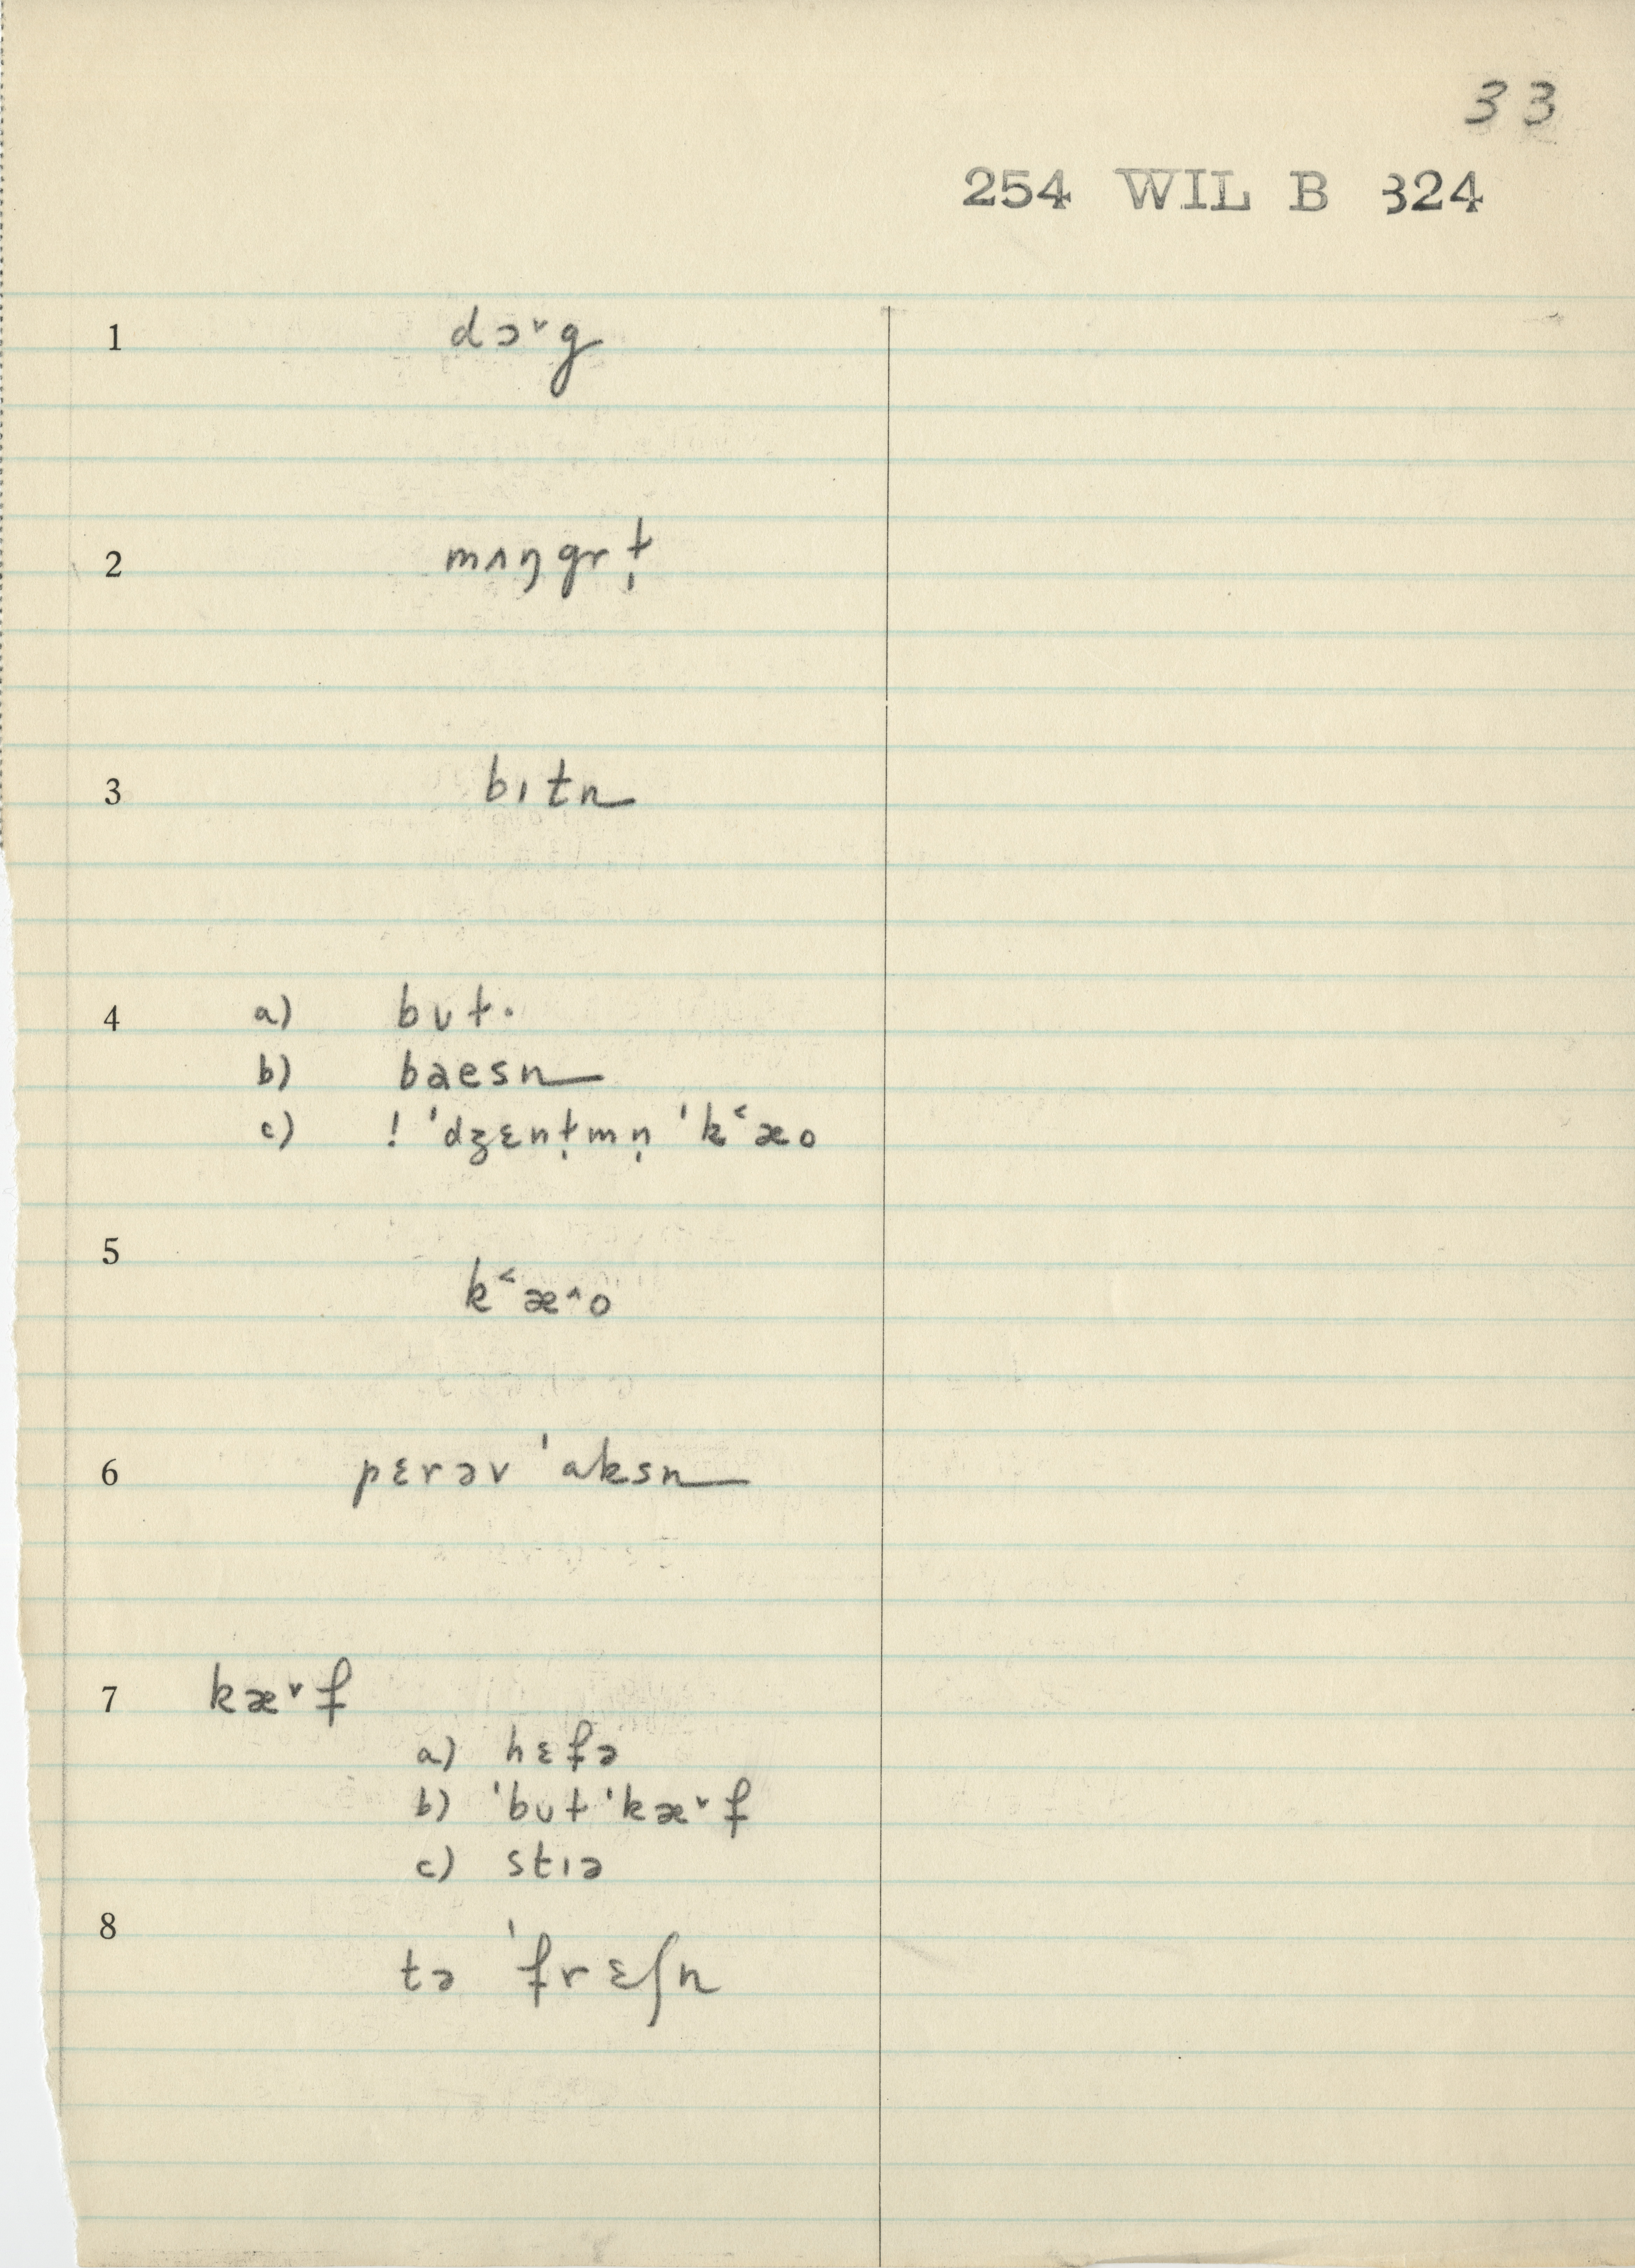 33
254 WIL B 324
1 dɔ˅g
2 mʌŋgrɫ̩
3 bɪtn
4 a) bʊɫ·
b) baesn
c) ! 'dʒɛnɫ̩mn̩ 'k˂æo
5 k˂æ˄o
6 pɛrəv 'aksn
7 kæ˅f
a) hɛfə
b) 'bʊɫ 'kæ˅f
c) stɪə
8 tə 'frɛʃn